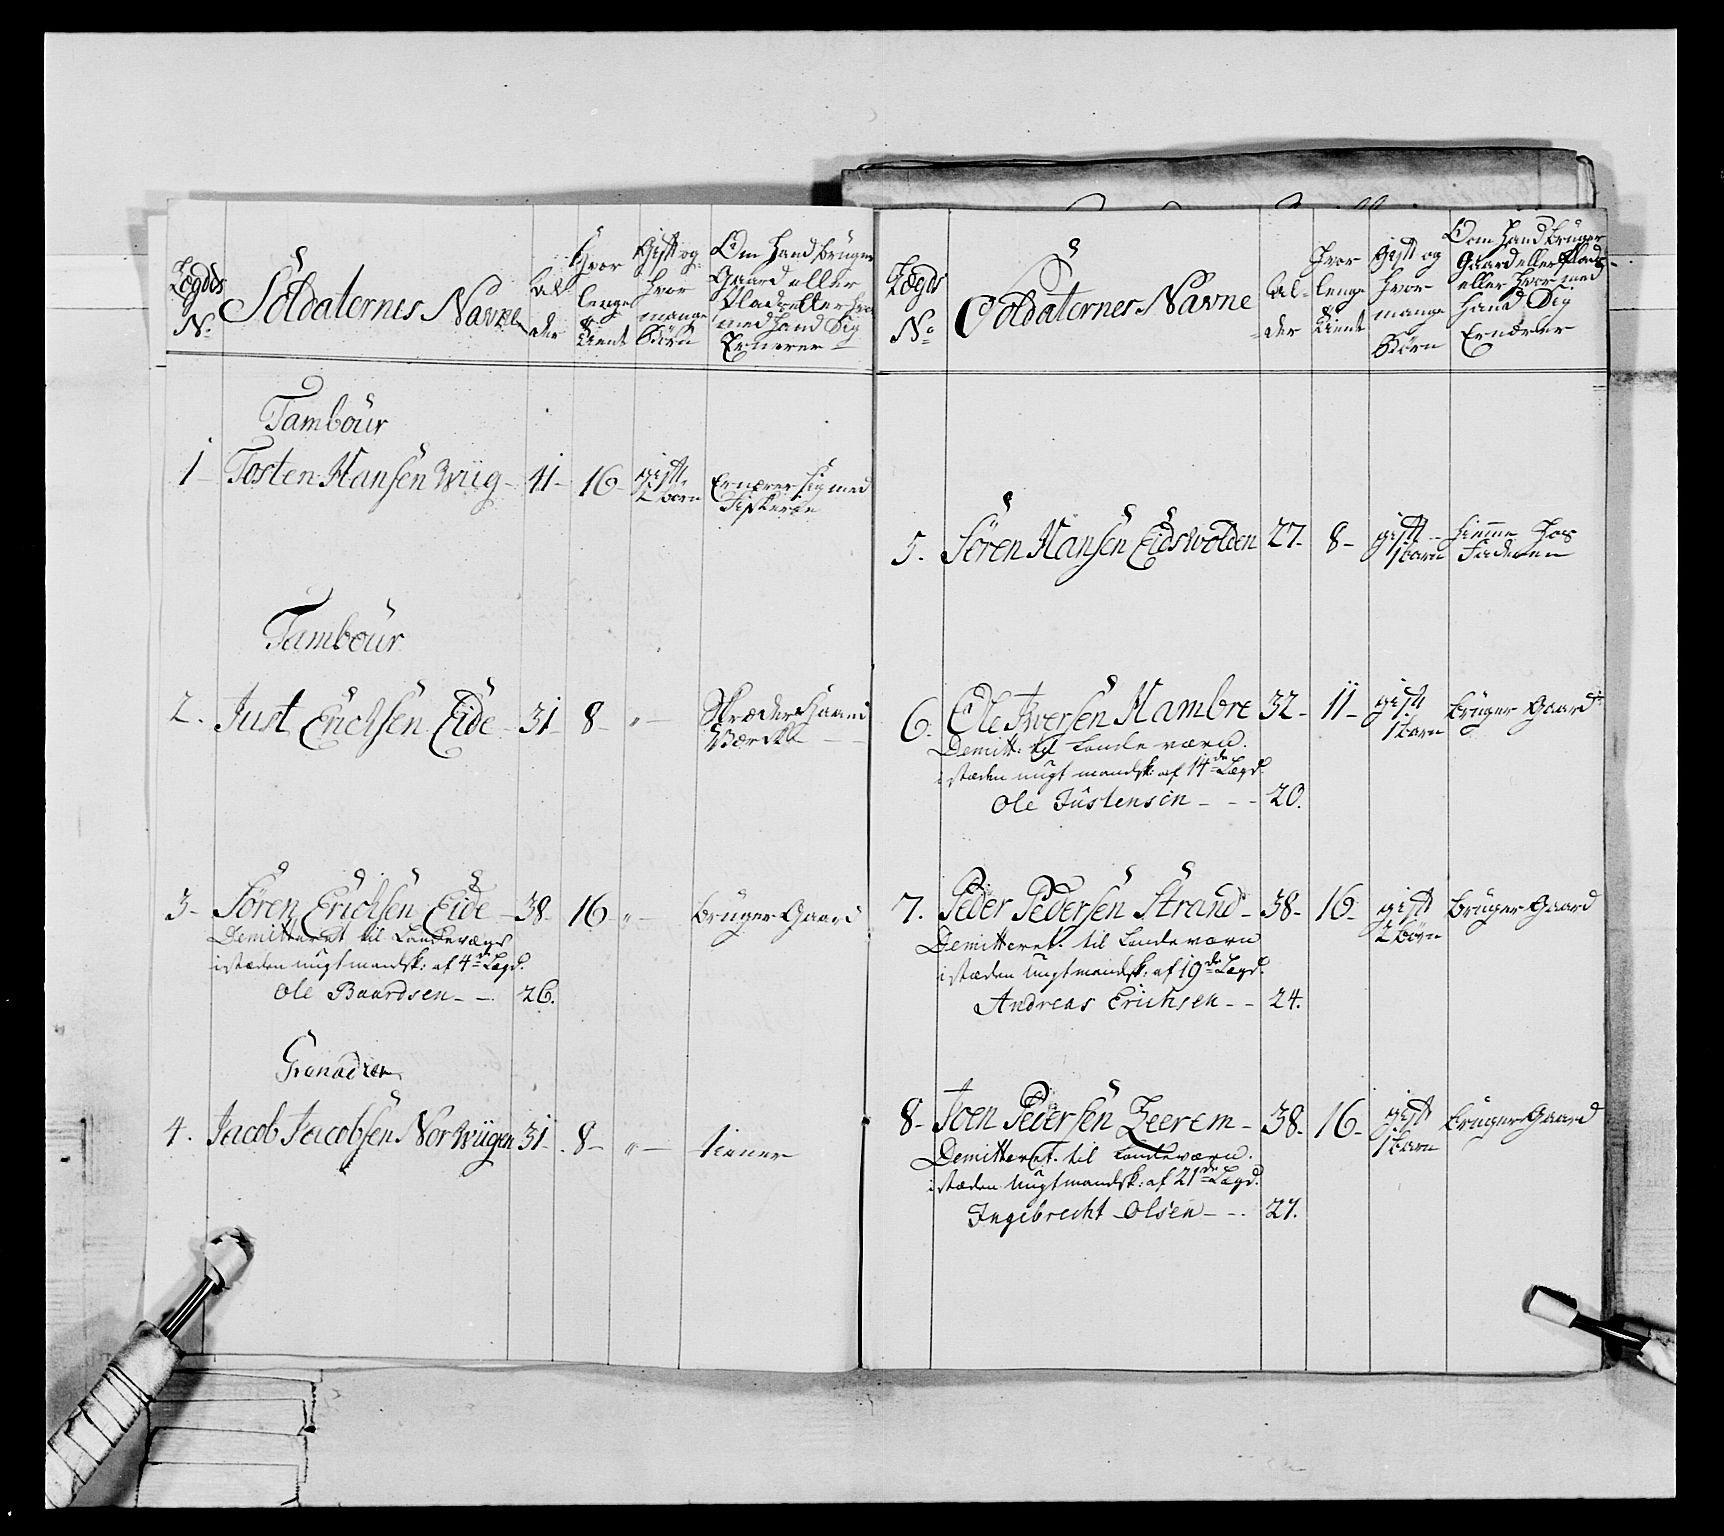 Lægdds
No
Soldaternes Navne
Al-
der
Hvor
lenge
tient
Gift og
hvor
mange
Børn
Om hand bruger
Gaard eller
Plads eller hvor
med hand Sig
Ernerer
Tambour
1 Tosten Hansen Wiig 41 16 gift 2 børn Ernærer sig med
Fiskerie
Tambour
2. Just Erichsen Eide 31 8 " Skræder Haand
Værck
3 Sören Erichsen Eide 38 16 " bruger Gaard
Demitteret til Landeværn
istæden ungt mandsk: af 4de Lægd.
Ole Baardsen 26.
Grenadeer
4. Jacob Jacobsen Norwiigen 31 8 " tiener
Lægds
No
Soldaternes Navne
Al-
der
Hvor
lenge
tient
Gift og
hvor
mange
Børn
Om Hand bruger
Gaard eller Plads
eller hvor med
hand Sig
Ernærer
5. Sören Hansen Eidsvolden 27 8 gift 1 barn hiemme hos
Faderen
6. Ole Iversen Hambre 32 11 gift 1 barn bruger Gaard
Demitt: til Landeværn.
istæden ungt mandsk: af 14de Lægd.
Ole Justensen 20.
7. Peder Pedersen Strand 38 16 gift 2 børn bruger Gaard
Demitteret til Landeværn
istæden ungt mandsk: af 19de Lægd.
Andreas Erichsen 24.
8 Joen Pedersen Leerem 38 16 gift 1 barn bruger Gaard
Demitteret til Landeværn.
istæden ungt mandsk: af 21de Lægd.
Ingebrecht Olsen 27.